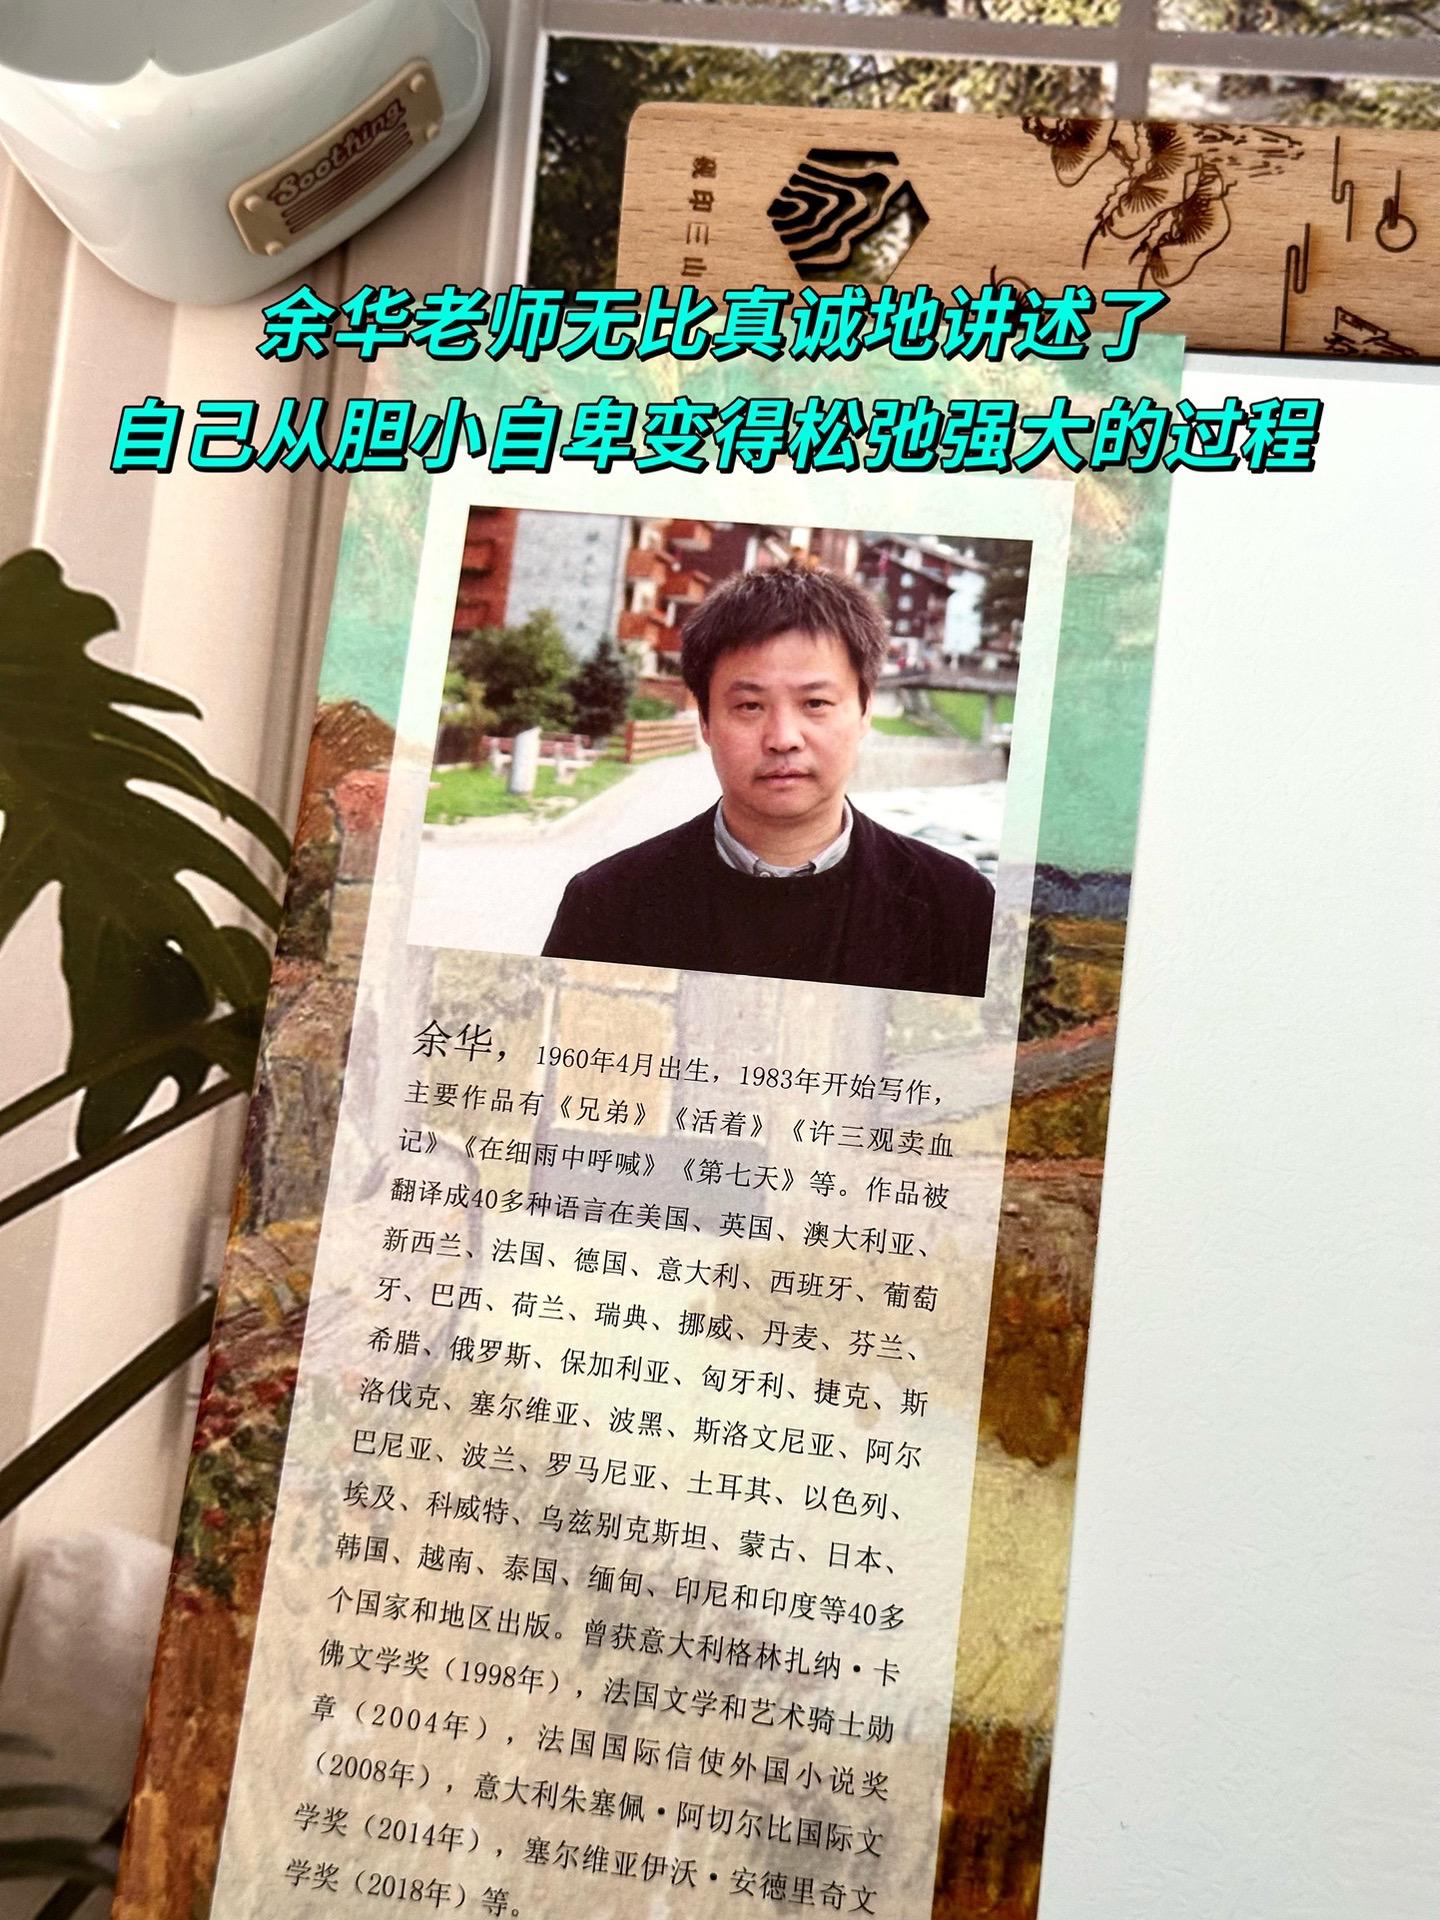 Soothing
我印三山
余华老师无比真诚地讲述了
自己从胆小自卑变得松弛强大的过程
余华，1960年4月出生，1983年开始写作，
主要作品有《兄弟》《活着》《许三观卖血
记》《在细雨中呼喊》《第七天》等。作品被
翻译成40多种语言在美国、英国、澳大利亚、
新西兰、法国、德国、意大利、西班牙、葡萄
牙、巴西、荷兰、瑞典、挪威、丹麦、芬兰、
希腊、俄罗斯、保加利亚、匈牙利、捷克、斯
洛伐克、塞尔维亚、波黑、斯洛文尼亚、阿尔
巴尼亚、波兰、罗马尼亚、土耳其、以色列、
埃及、科威特、乌兹别克斯坦、蒙古、日本、
韩国、越南、泰国、缅甸、印尼和印度等40多
个国家和地区出版。曾获意大利格林扎纳·卡
佛文学奖（1998年），法国文学和艺术骑士勋
章（2004年），法国国际信使外国小说奖
（2008年），意大利朱塞佩·阿切尔比国际文
学奖（2014年），塞尔维亚伊沃·安德里奇文
学奖（2018年）等。